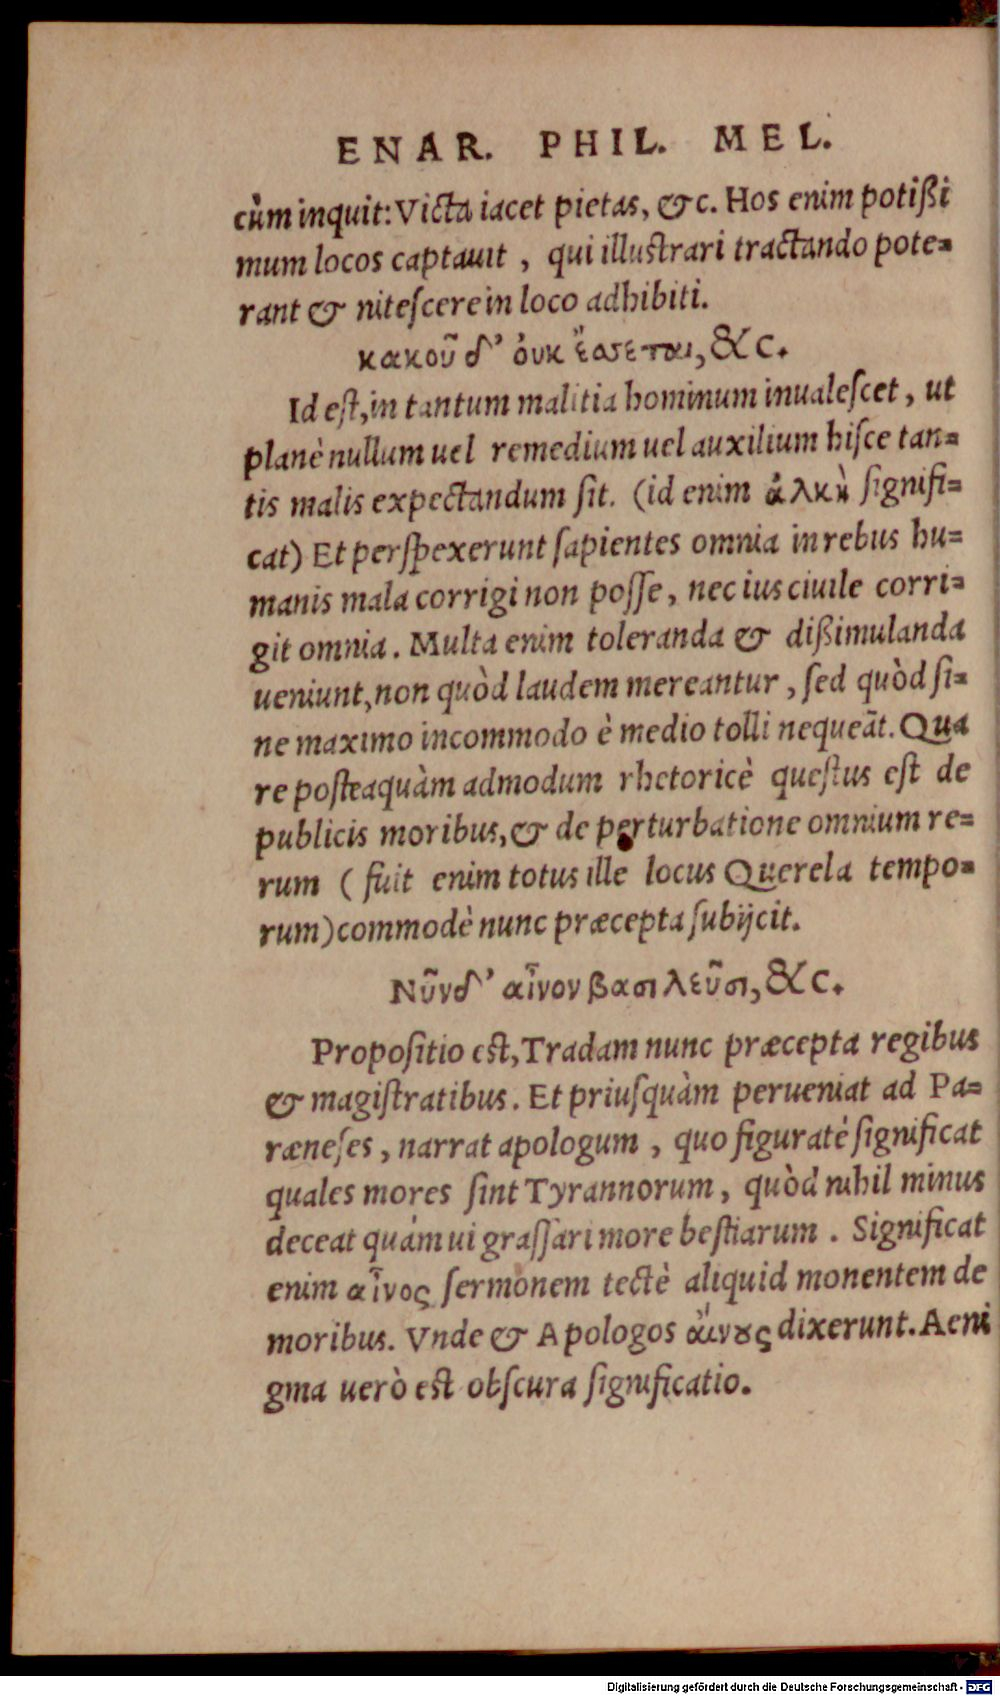 ENAR. PHIL. MEL.
cùm inquit: Victa iacet pietas, &c. Hos enim potißi
mum locos captauit, qui illustrari tractando pote=
rant & niteſcere in loco adhibiti.
κακοῦ δ' ὀυκ ἔσσεται, &c.
Id eſt, in tantum malitia hominum inualeſcet, ut
planè nullum uel remedium uel auxilium hiſce tan=
tis malis expectandum ſit. (id enim ἀλκὴ ſignifi=
cat) Et perſpexerunt ſapientes omnia in rebus hu=
manis mala corrigi non poſſe, nec ius ciuile corri=
git omnia. Multa enim toleranda & dißimulanda
ueniunt, non quòd laudem mereantur, ſed quòd ſi=
ne maximo incommodo è medio tolli nequeāt. Qua
re poſteaquàm admodum rhetoricè queſtus eſt de
publicis moribus, & de perturbatione omnium re=
rum (fuit enim totus ille locus Querela tempo=
rum) commodè nunc præcepta ſubijcit.
Νῦν δ' αἶνον βασιλεῦσι, &c.
Propoſitio eſt, Tradam nunc præcepta regibus
& magiſtratibus. Et priuſquàm perueniat ad Pa=
ræneſes, narrat apologum, quo figuratè ſignificat
quales mores ſint Tyrannorum, quòd nihil minus
deceat quàm ui graſſari more beſtiarum. Significat
enim αἶνος ſermonem tectè aliquid monentem de
moribus. Vnde & Apologos ἄινους dixerunt. Aeni
gma uerò eſt obſcura ſignificatio.
Digitalisierung gefördert durch die Deutsche Forschungsgemeinschaft - DFG